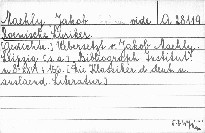 Maehly, Jakob vide | A. 28119
Roemische Lyriker.
(Gedichte.) Übersetzt v. Jakob Maehly.
Leipzig (s.a.) Bibliograph. Institut.
(Die Klassiker d. deut. u.
ausländ. Literatur.)